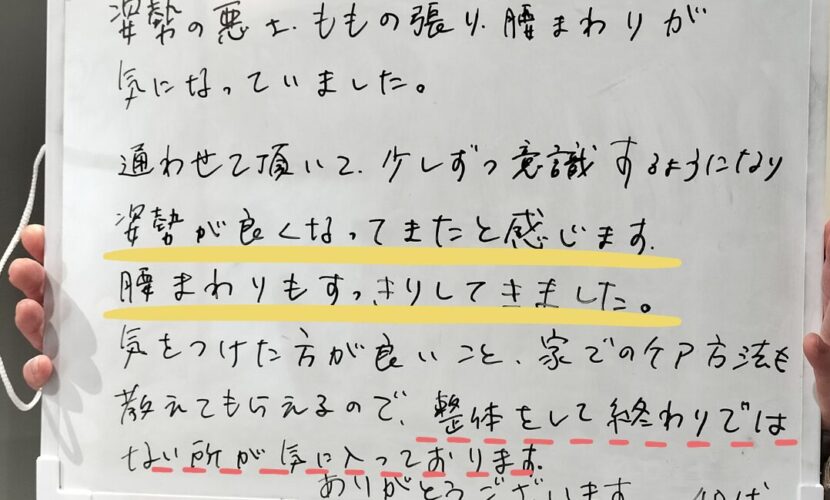 姿勢の悪さ、ももの張り、腰まわりが
気になっていました。
通わせて頂いて、少しずつ意識するようになり
姿勢が良くなってきたと感じます。
腰まわりもすっきりしてきました。
気をつけた方が良いこと、家でのケア方法も
教えてもらえるので、整体をして終わりでは
ない所が気に入っております。
ありがとうございます